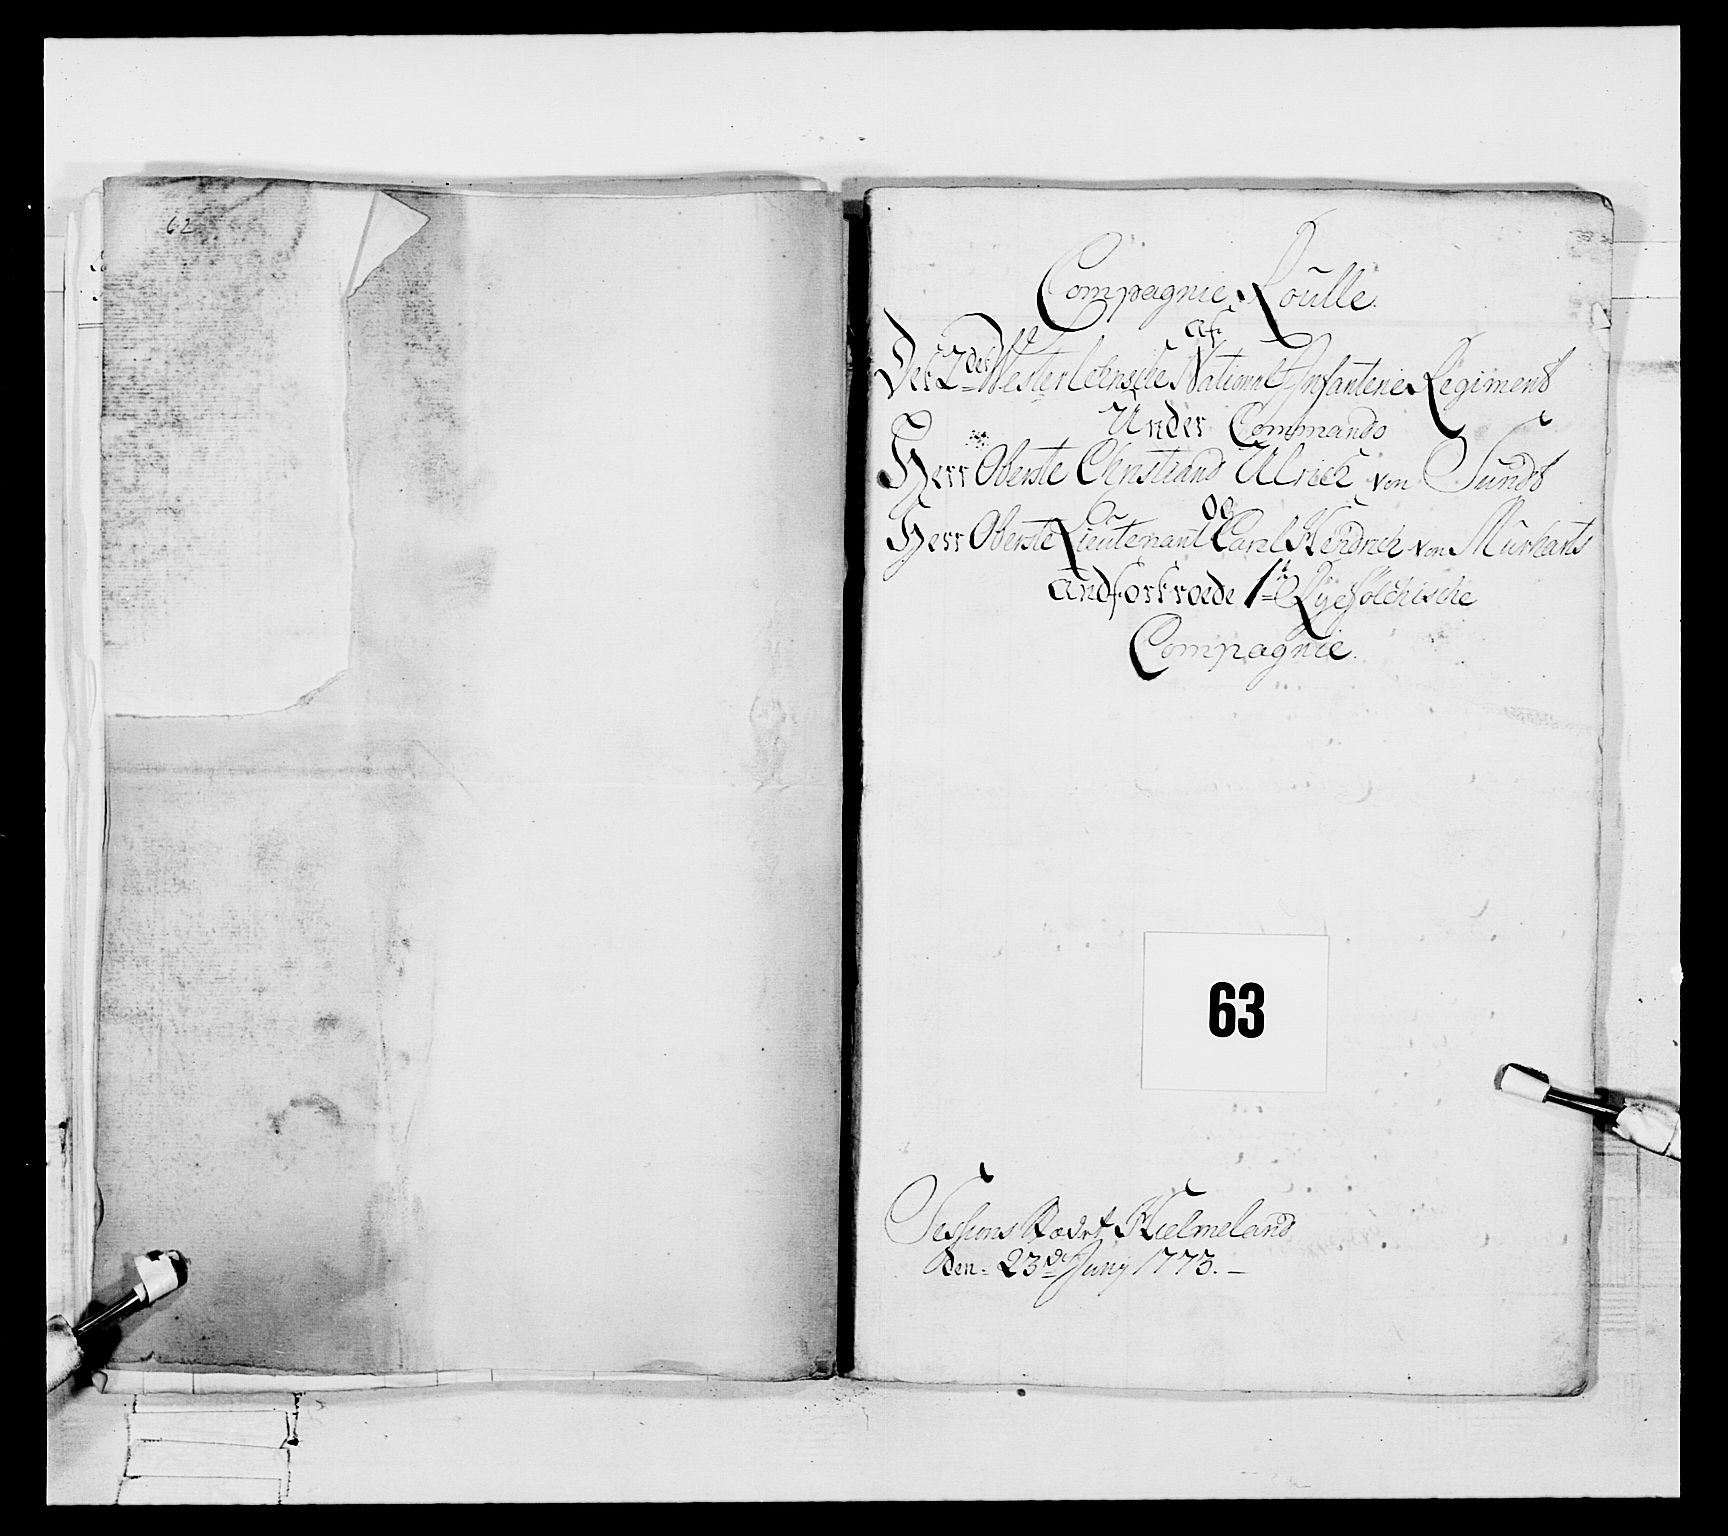 62
Compagnie Roulle.
af
Det 2det Westerlehnsche National Infanterie Regiment
Under Commando
Herr Oberste Christiand Ulrich von Sundt
og
Herr Oberste Lieutenant Carel Hendrich von Murharts
andfortroede 1te Ryefölchische
Compagnie.
63
Sessions Stædet Hielmeland
den 23de Junij 1773.